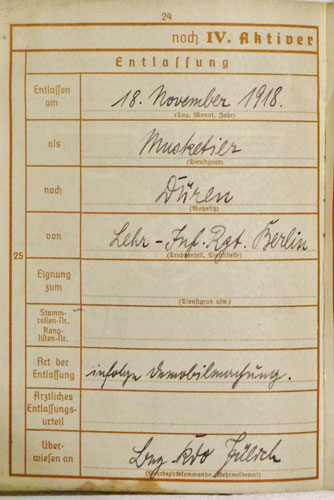 24
noch IV. Aktiver
Entlassung
Entlassen am
18. November 1918.
(Tag, Monat, Jahr)
als
Musketier
(Dienstgrad)
nach
Düren
(Wohnsitz)
von
Lehr-Inf. Rgt. Berlin
(Truppenteil, Dienststelle)
25
Eignung zum
(Dienstgrad usw.)
Stamm-
rollen-Nr.
Rang-
listen-Nr.
Art der Entlassung
infolge Demobilmachung.
Ärztliches
Entlassungs-
urteil
Über-
wiesen an
Bez. Kdo Jülich
(Wehrbezirkskommando, Wehrmeldeamt)